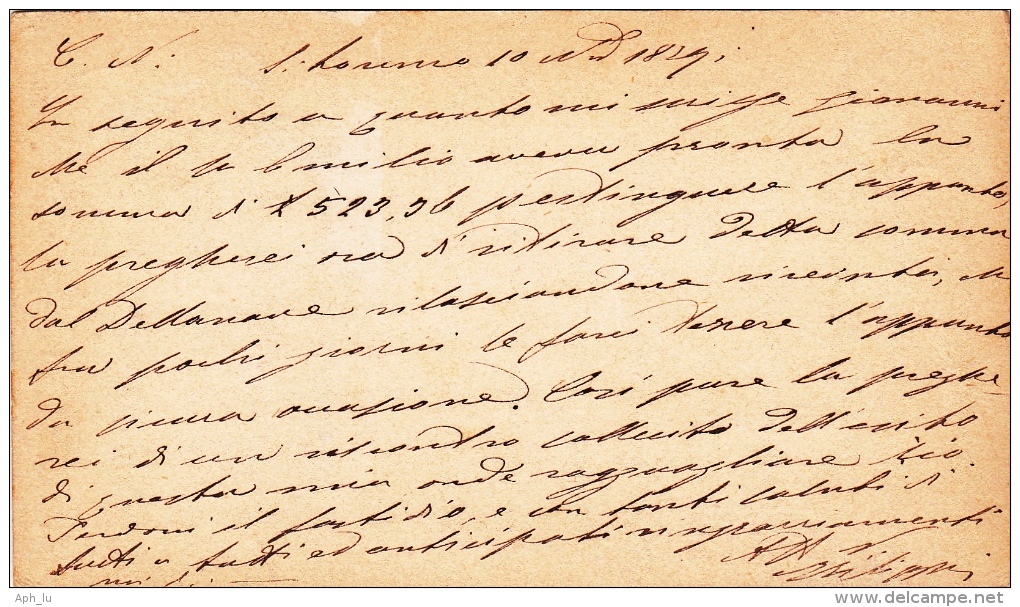 C. N: S. Lorenzo 10
In seguito a quanto mi scrisse Giovanni
che il Emilio aveva pronta la
somma di £ 523.36 per estinguere l'appunto,
la pregherei ora di ritirare detta somma
dal Dellanave rilasciandone ricevuta,
fra pochi giorni le farò tenere l'appunto
da sicura occasione. Così pure la preghe
rei di un riscontro sollecito dell'esito
di questa mia onde ragguagliare Zio.
Perdoni il fastidio, e con tanti saluti di
tutti a tutti ed anticipati ringraziamenti
mi di
Aph_lu
delcampe.net